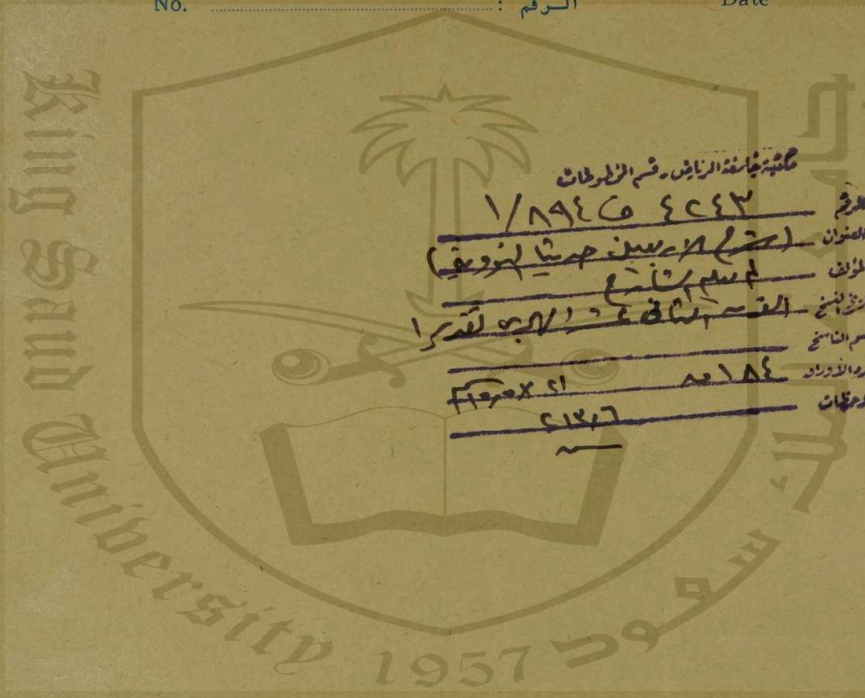 No. ............ الرقم : Date ............
مكتبة جامعة الرياض - قسم المخطوطات
الرقم ٤٢٤٣ ف ٨٩٤/١
العنوان (شرح الأربعين حديثا النووية)
المؤلف لم يعلم الشارح
تاريخ النسخ القرن الثاني عشر الهجري تقديرا
اسم الناسخ
عدد الأوراق ١٨٤ ص
٢١٣٫٦
King Saud University 1957
جامعة الملك سعود